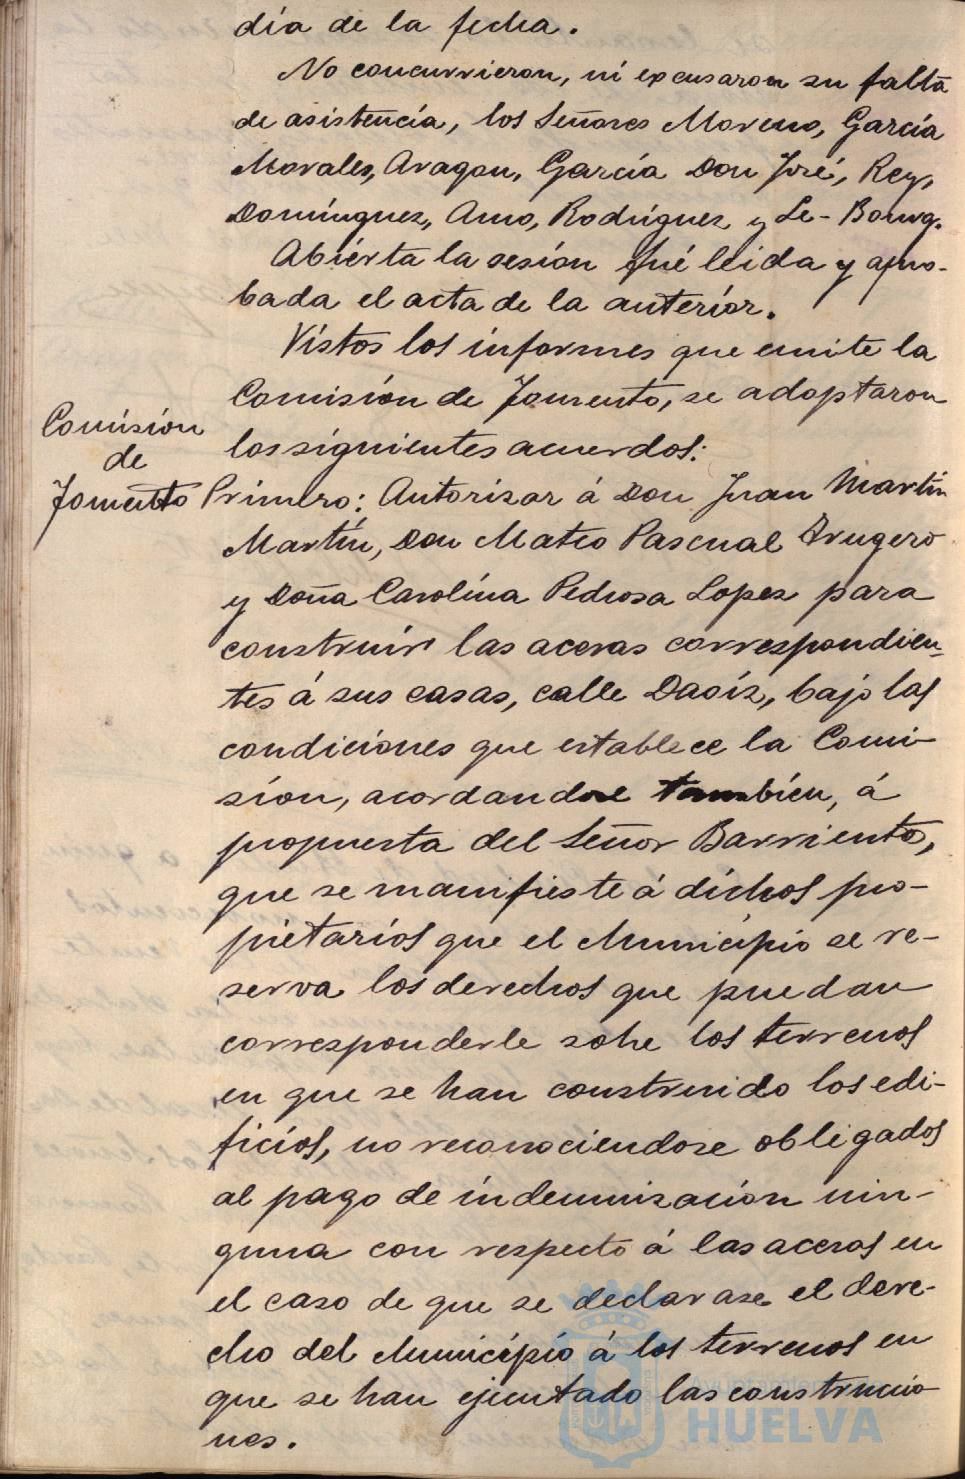 día de la fecha.
No concurrieron, ni excusaron su falta
de asistencia, los Señores Moreno, García
Morales, Aragon, García Don José, Rey,
Domínguez, Amo, Rodríguez y Le-Bourg.
Abierta la sesión fué leida y apro-
bada el acta de la anterior.
Vistos los informes que emite la
Comisión de Fomento, se adoptaron
los siguientes acuerdos:
Comisión
de
Fomento
Primero: Autorizar á Don Juan Martín
Martín, Don Mateo Pascual Trugero
y Doña Carolina Pedrosa Lopez para
construir las aceras correspondien-
tes á sus casas, calle Daoíz, bajo las
condiciones que establece la Comi-
sión, acordandose tambien, á
propuesta del Señor Barriento,
que se manifieste á dichos pro-
pietarios que el Municipio se re-
serva los derechos que puedan
corresponderle sobre los terrenos
en que se han construido los edi-
ficios, no reconociendose obligados
al pago de indemnización nin-
guna con respecto á las aceras en
el caso de que se declarase el dere-
cho del Municipio á los terrenos en
que se han ejecutado las construccio
nes.
Ayuntamiento de
HUELVA